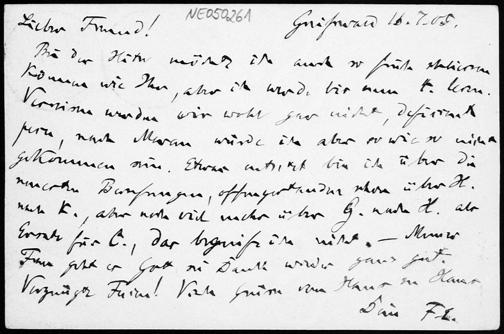 NE050261
Lieber Freund! Greifswald 16.7.05.
Bei der Hitze möchte ich auch so früh schliessen
können wie Ihr, aber ich werde bis zum
Verreisen werden wir wohl gar nicht, definitiv
nach Meran würde ich aber so wie so nicht
gekommen sein. Etwas entsetzt bin ich über die
neuesten Berufungen, offengestanden schon über H.
nach K., aber noch viel mehr über G. nach H. als
Ersatz für C., das begreife ich nicht. — Meiner
Frau geht es Gott sei Dank wieder ganz gut.
Vergnügte Ferien! Viele Grüsse von Haus zu Haus
Dein F. E.